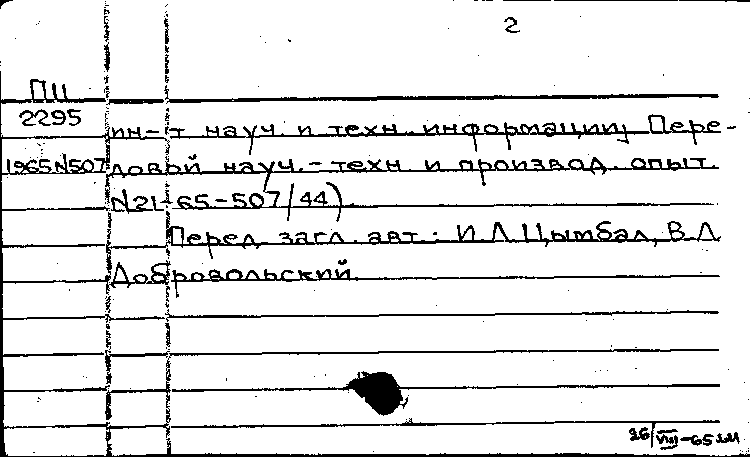 2
ПЦ
2295
1965 N507
ин-т науч. и техн. информации; Пере-
довой науч.-техн. и производ. опыт.
N21-65-507/44).
Перед загл. авт.: И. Л. Цымбал, В. Л.
Добровольский.
26/VIII-65